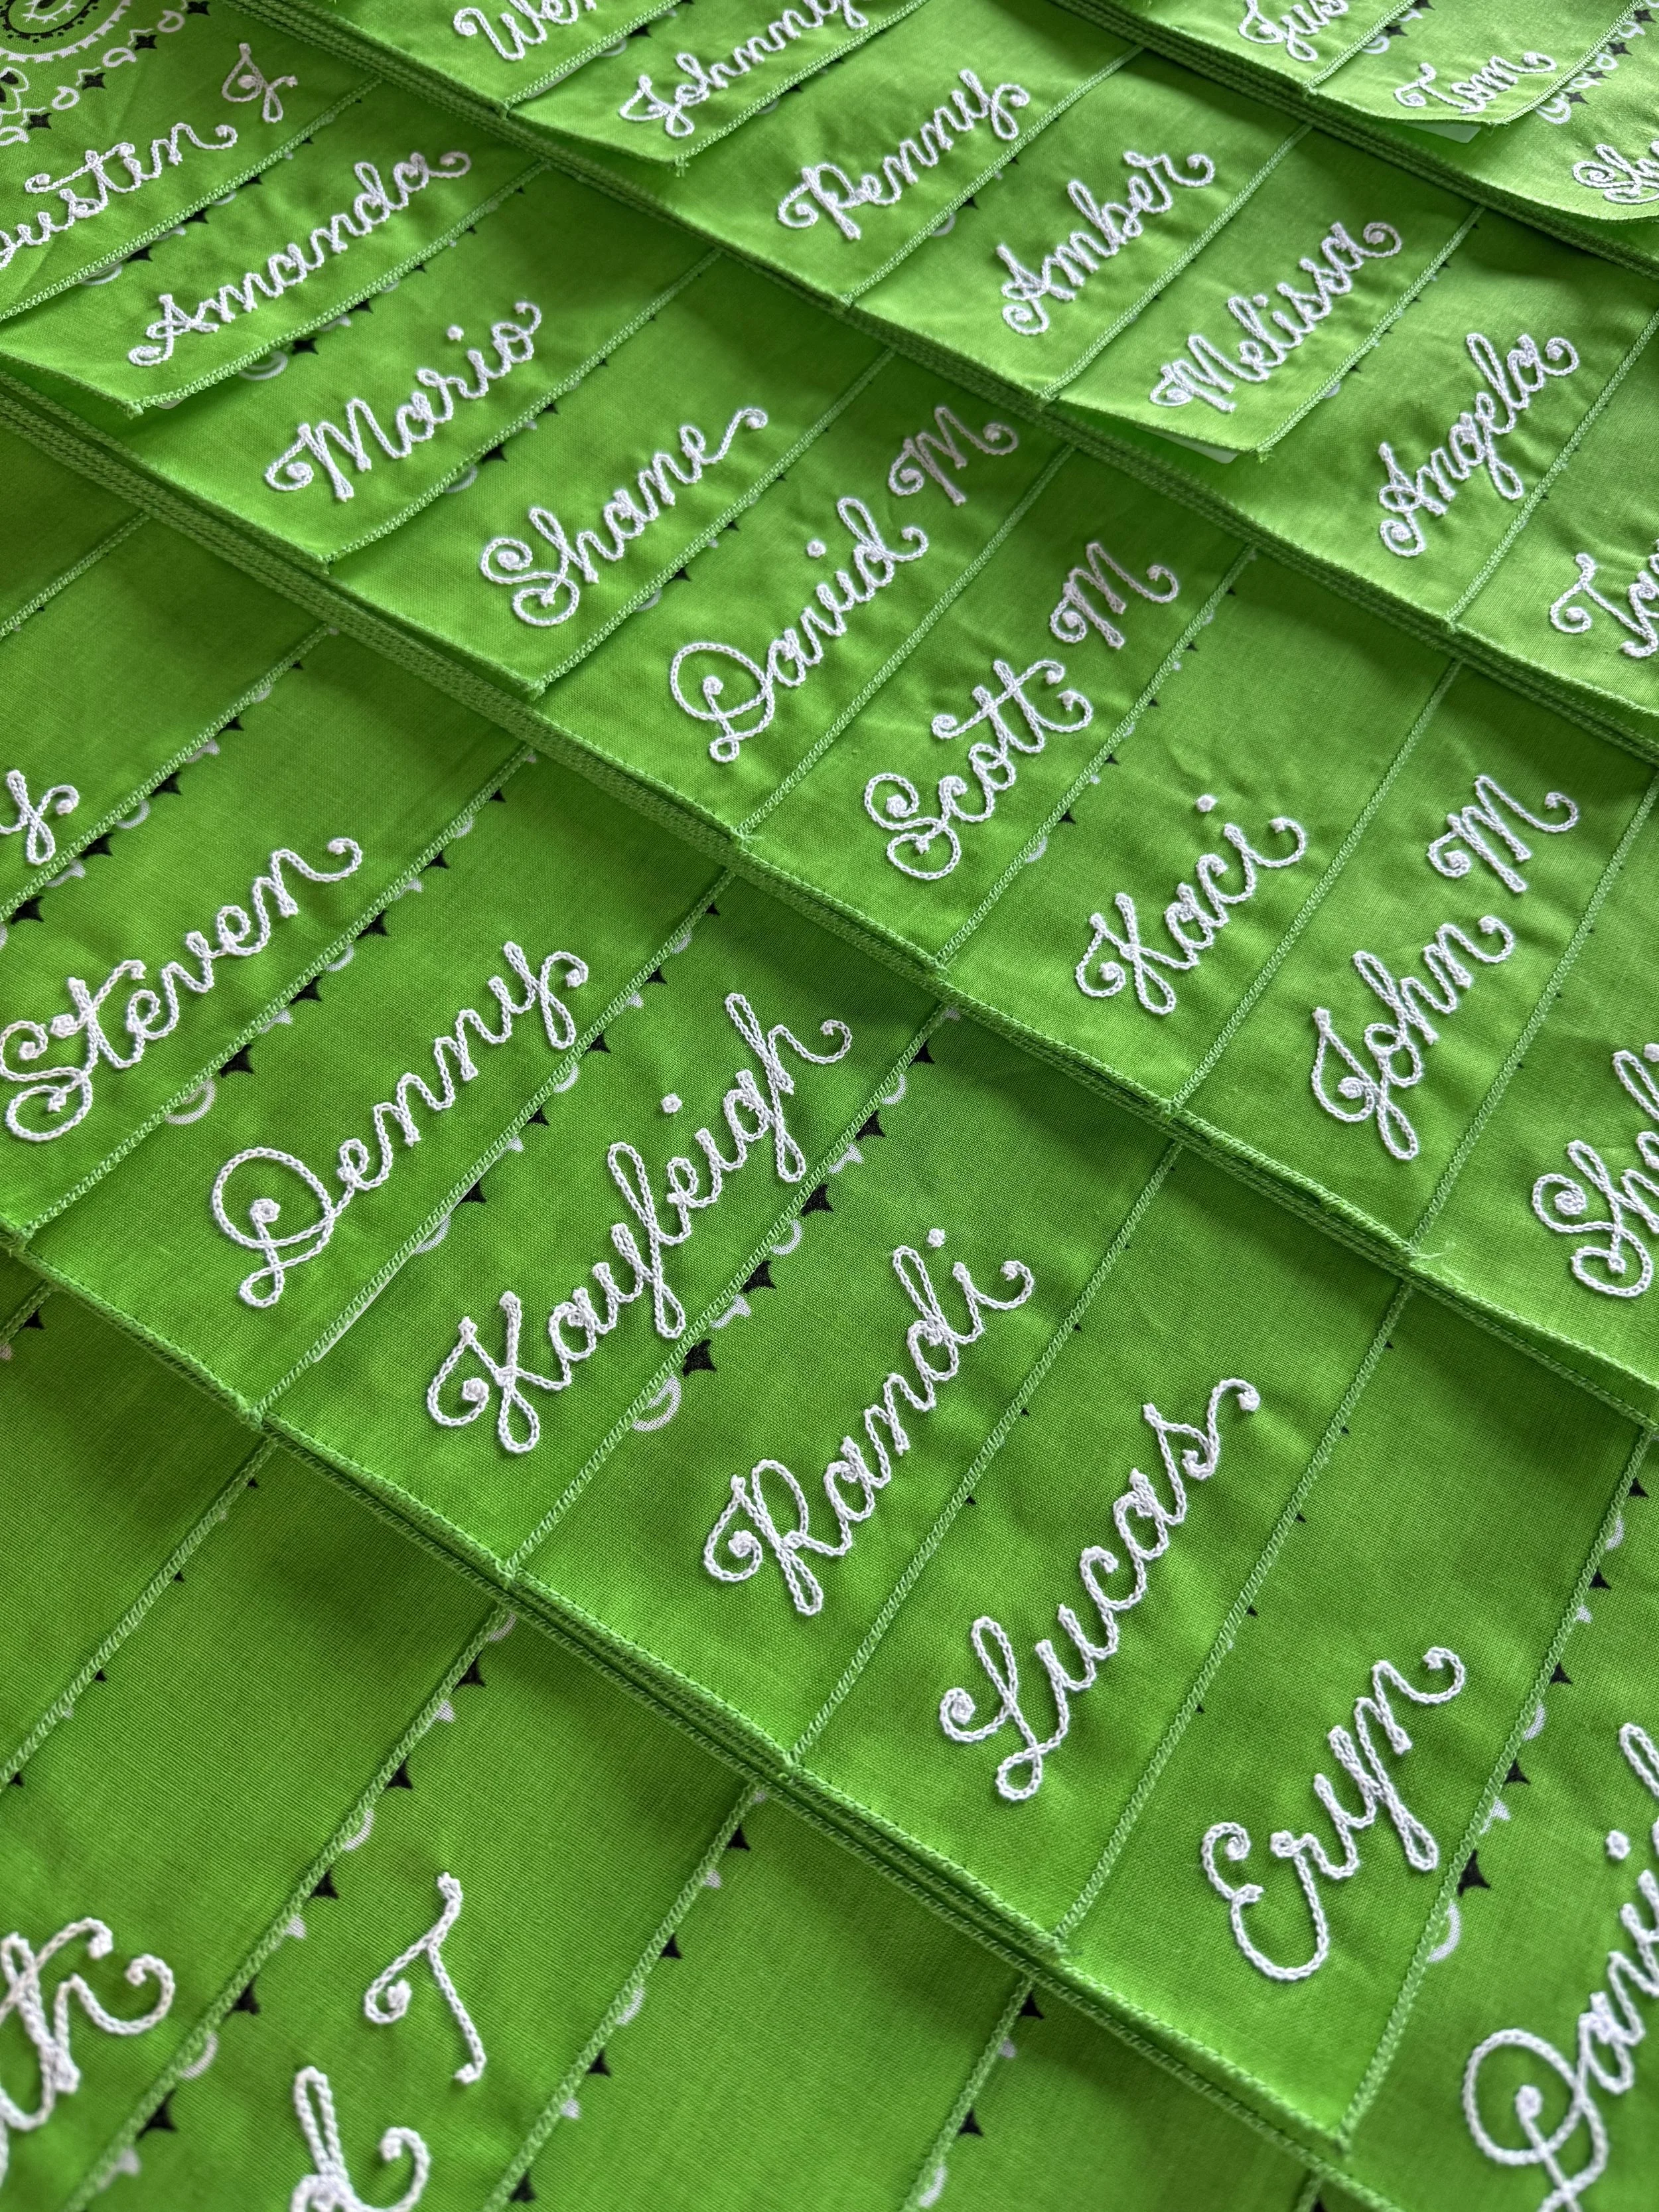 Johnny
Tom
Penny
Amber
Melissa
Angela
Amanda
Mario
Shane
David M
Scott M
Kaci
John M
Steven
Denny
Kayleigh
Randi
Lucas
Eryn
T